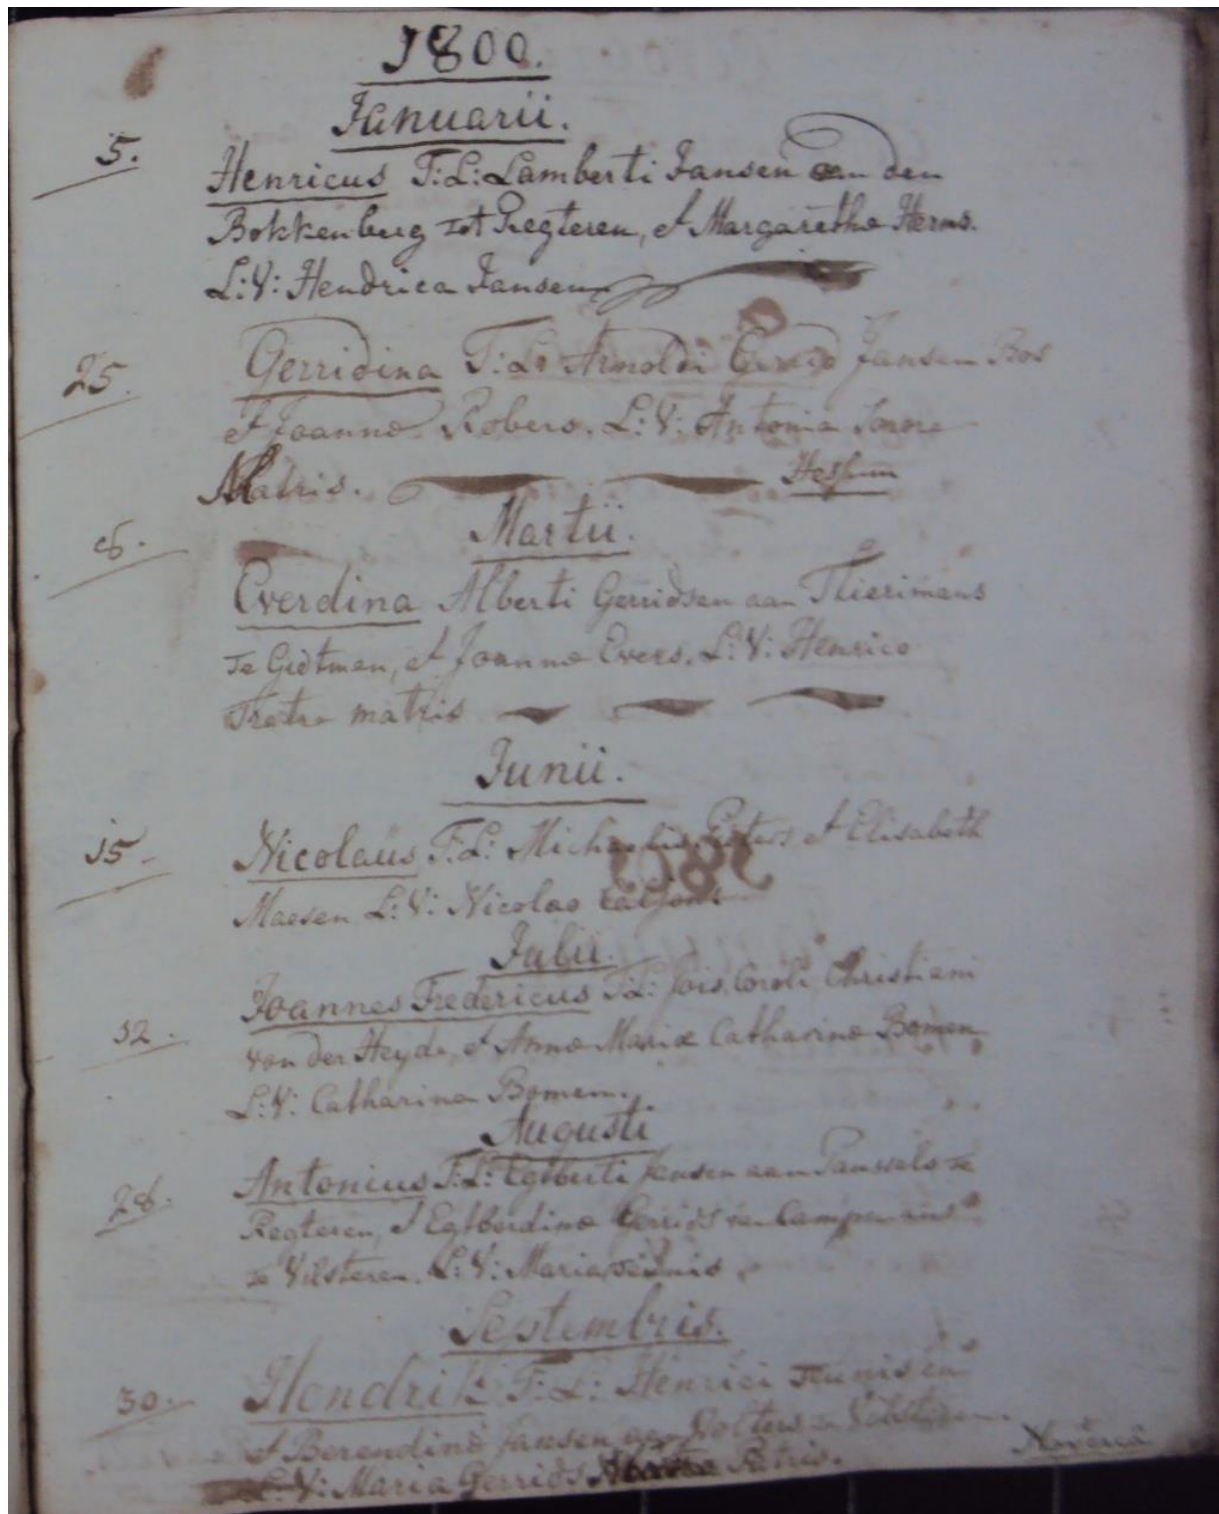 1800.
Januarii.
5. Henricus F: L: Lamberti Jansen aan den
Bokkenberg tot Regteren, et Margaretha Herms.
L: V: Hendrica Jansen
25. Gerridina F: L: Arnoldi Gerrid Jansen Bos
et Joanna Robers. L: V: Antonia Sorore
Matris. Hessum
Martii.
6. Everdina Alberti Gerridsen aan
te et Joanna Evers. L: V: Henrico
Fratre matris
Junii.
15 Nicolaus F: L: Michaelis Peters et Elisabeth
Maesen L: V: Nicolao
Julii.
12. Joannes Fredericus F: L: Jois Caroli Christiani
von der Heyde, et Anna Maria Catharina Bomen
L: V: Catharina Bomen.
Augusti
28. Antonius F: L: Egberti Jansen aan te
Regteren, et Egberdina Gerrids
te Vilsteren. L: V: Maria
Septembris.
30. Hendrik F: L: Henrici Teunissen
et Berendina Jansen aan Wolters te Vilsteren.
L: V: Maria Gerrids Patris. Noverca